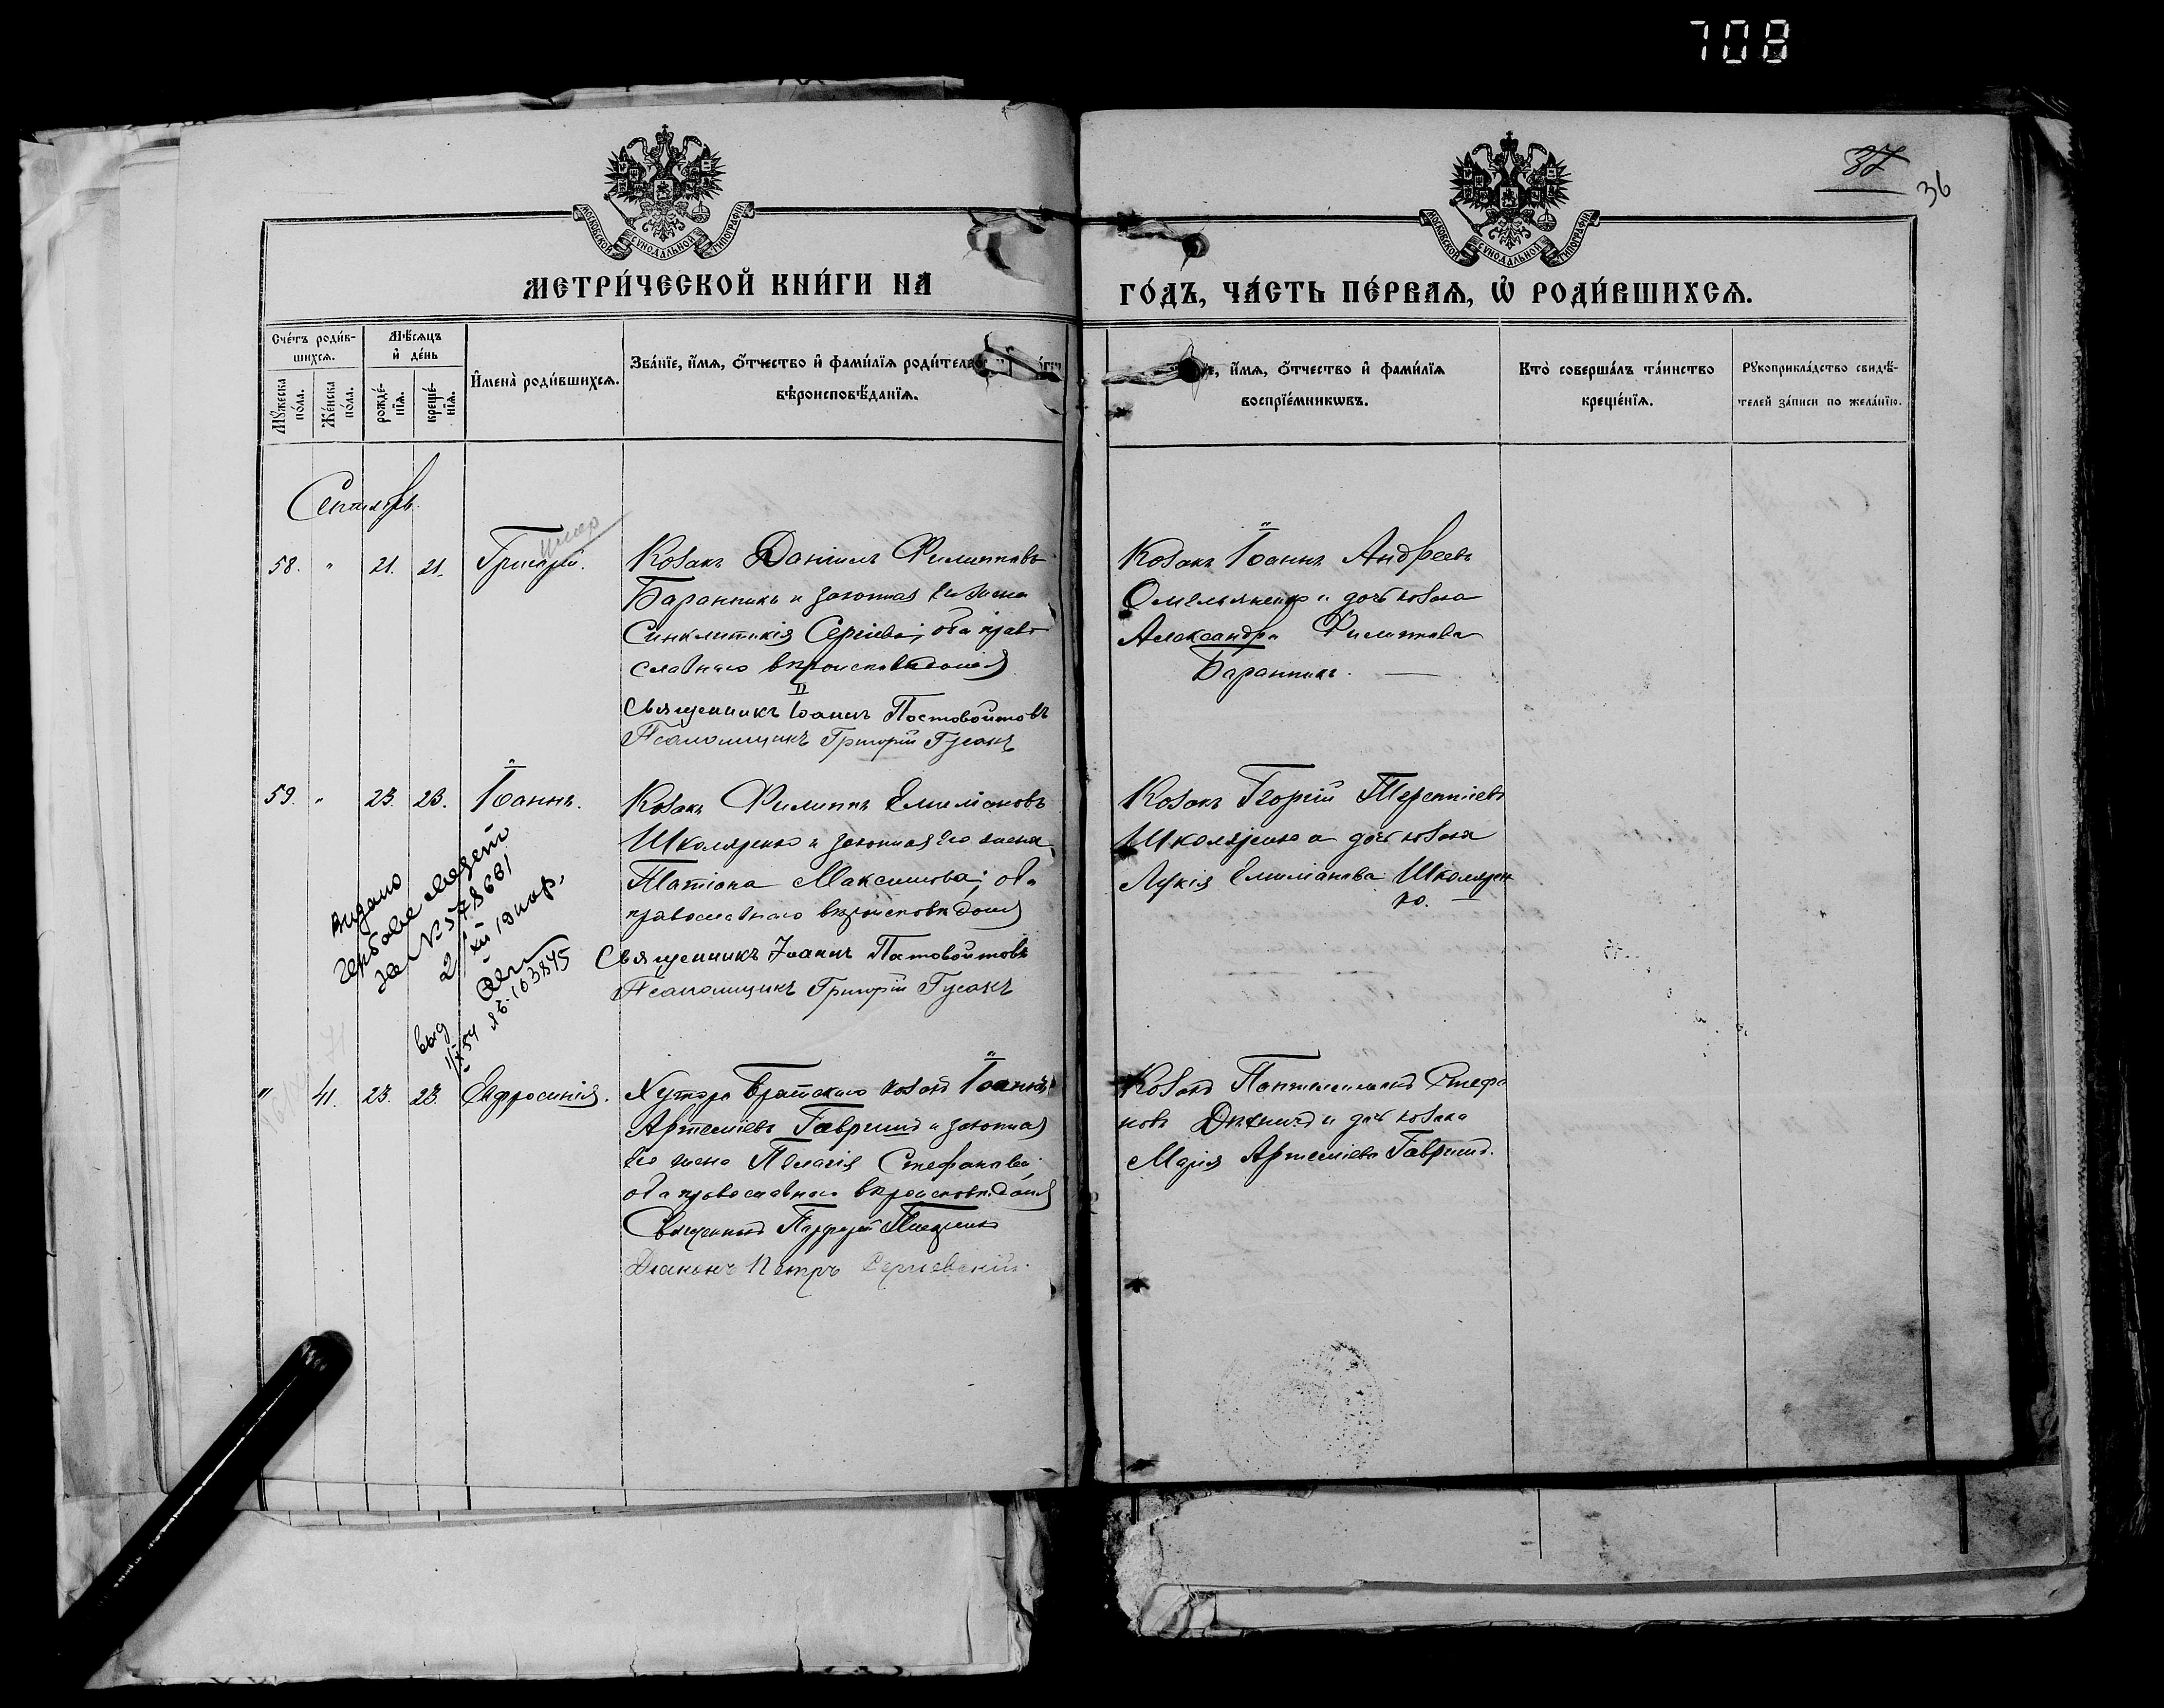 708
37
36
МОСКОВСКОЙ СѴНОДАЛЬНОЙ ТИПОГРАФІИ
МОСКОВСКОЙ СѴНОДАЛЬНОЙ ТИПОГРАФІИ
МЕТРИ́ЧЕСКОЙ КНИ́ГИ НА
ГО́ДЪ, ЧА́СТЬ ПЕ́РВАѦ, Ѡ҆ РОДИ́ВШИХСѦ.
Сче́тъ роди́в-
шихсѧ.
Мꙋ́жеска по́ла.
Же́нска по́ла.
Мѣ́сѧцъ
и҆ де́нь
рожде́-
нїѧ.
креще́-
нїѧ.
И҆мена̀ роди́вшихсѧ.
Зва́нїе, и҆́мѧ, ѻ҆́тчество и҆ фами́лїѧ роди́телей
вѣроисповѣ́данїѧ.
и҆́мѧ, ѻ҆́тчество и҆ фами́лїѧ
воспрїе́мникѡвъ.
Кто̀ соверша́лъ та́инство
креще́нїѧ.
Рꙋкоприкла́дство свидѣ́-
телей за́писи по жела́нїю.
Сентябрь
58. " 21. 21. Григорій.
умер
Козакъ Даніилъ Филипповъ
Баранникъ и законная его жена
Синклитикія Сергіева; оба право
славнаго вѣроисповѣданія
Священникъ Іоаннъ Постовойтовъ
Псаломщикъ Григорій Гусакъ
Козакъ Іоаннъ Андреевъ
Омельяненко и дочь козака
Александра Филиппова
Баранникъ.
59. " 23. 23. Іоаннъ.
Козакъ Филиппъ Емиліановъ
Школяренко и законная его жена
Татіана Максимова; оба
православнаго вѣроисповѣданія
Священникъ Іоаннъ Постовойтовъ
Псаломщикъ Григорій Гусакъ
Козакъ Георгій Терентіевъ
Школяренко и дочь козака
Лукія Емиліанова Школярен
ко.
видано
гербове
за № 578661
103845
" 41. 23. 23. Евфросинія.
Хутора Братскаго козакъ Іоаннъ
Артеміевъ Гавришъ и законная
его жена Пелагія Стефанова;
оба православнаго вѣроисповѣданія
Священникъ
Діаконъ Петръ Сергіевскій.
Козакъ Пантелеимонъ Стефа
новъ и дочь козака
Марія Артеміева Гавришъ.